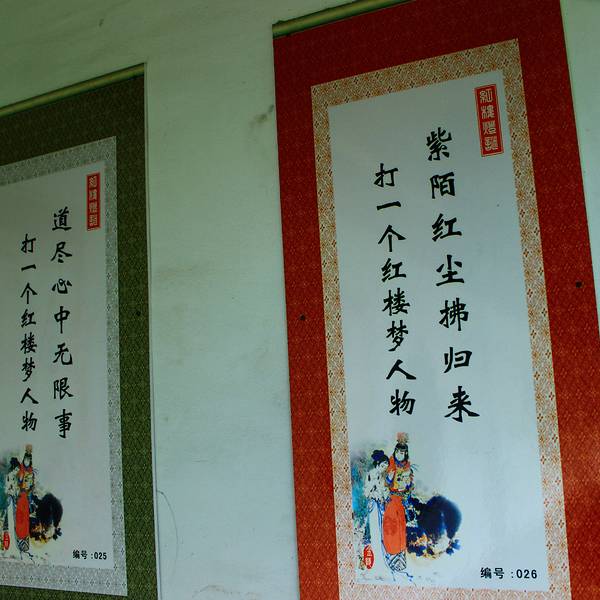 红楼灯谜
道尽心中无限事
打一个红楼梦人物
编号:025
红楼灯谜
紫陌红尘拂归来
打一个红楼梦人物
编号:026